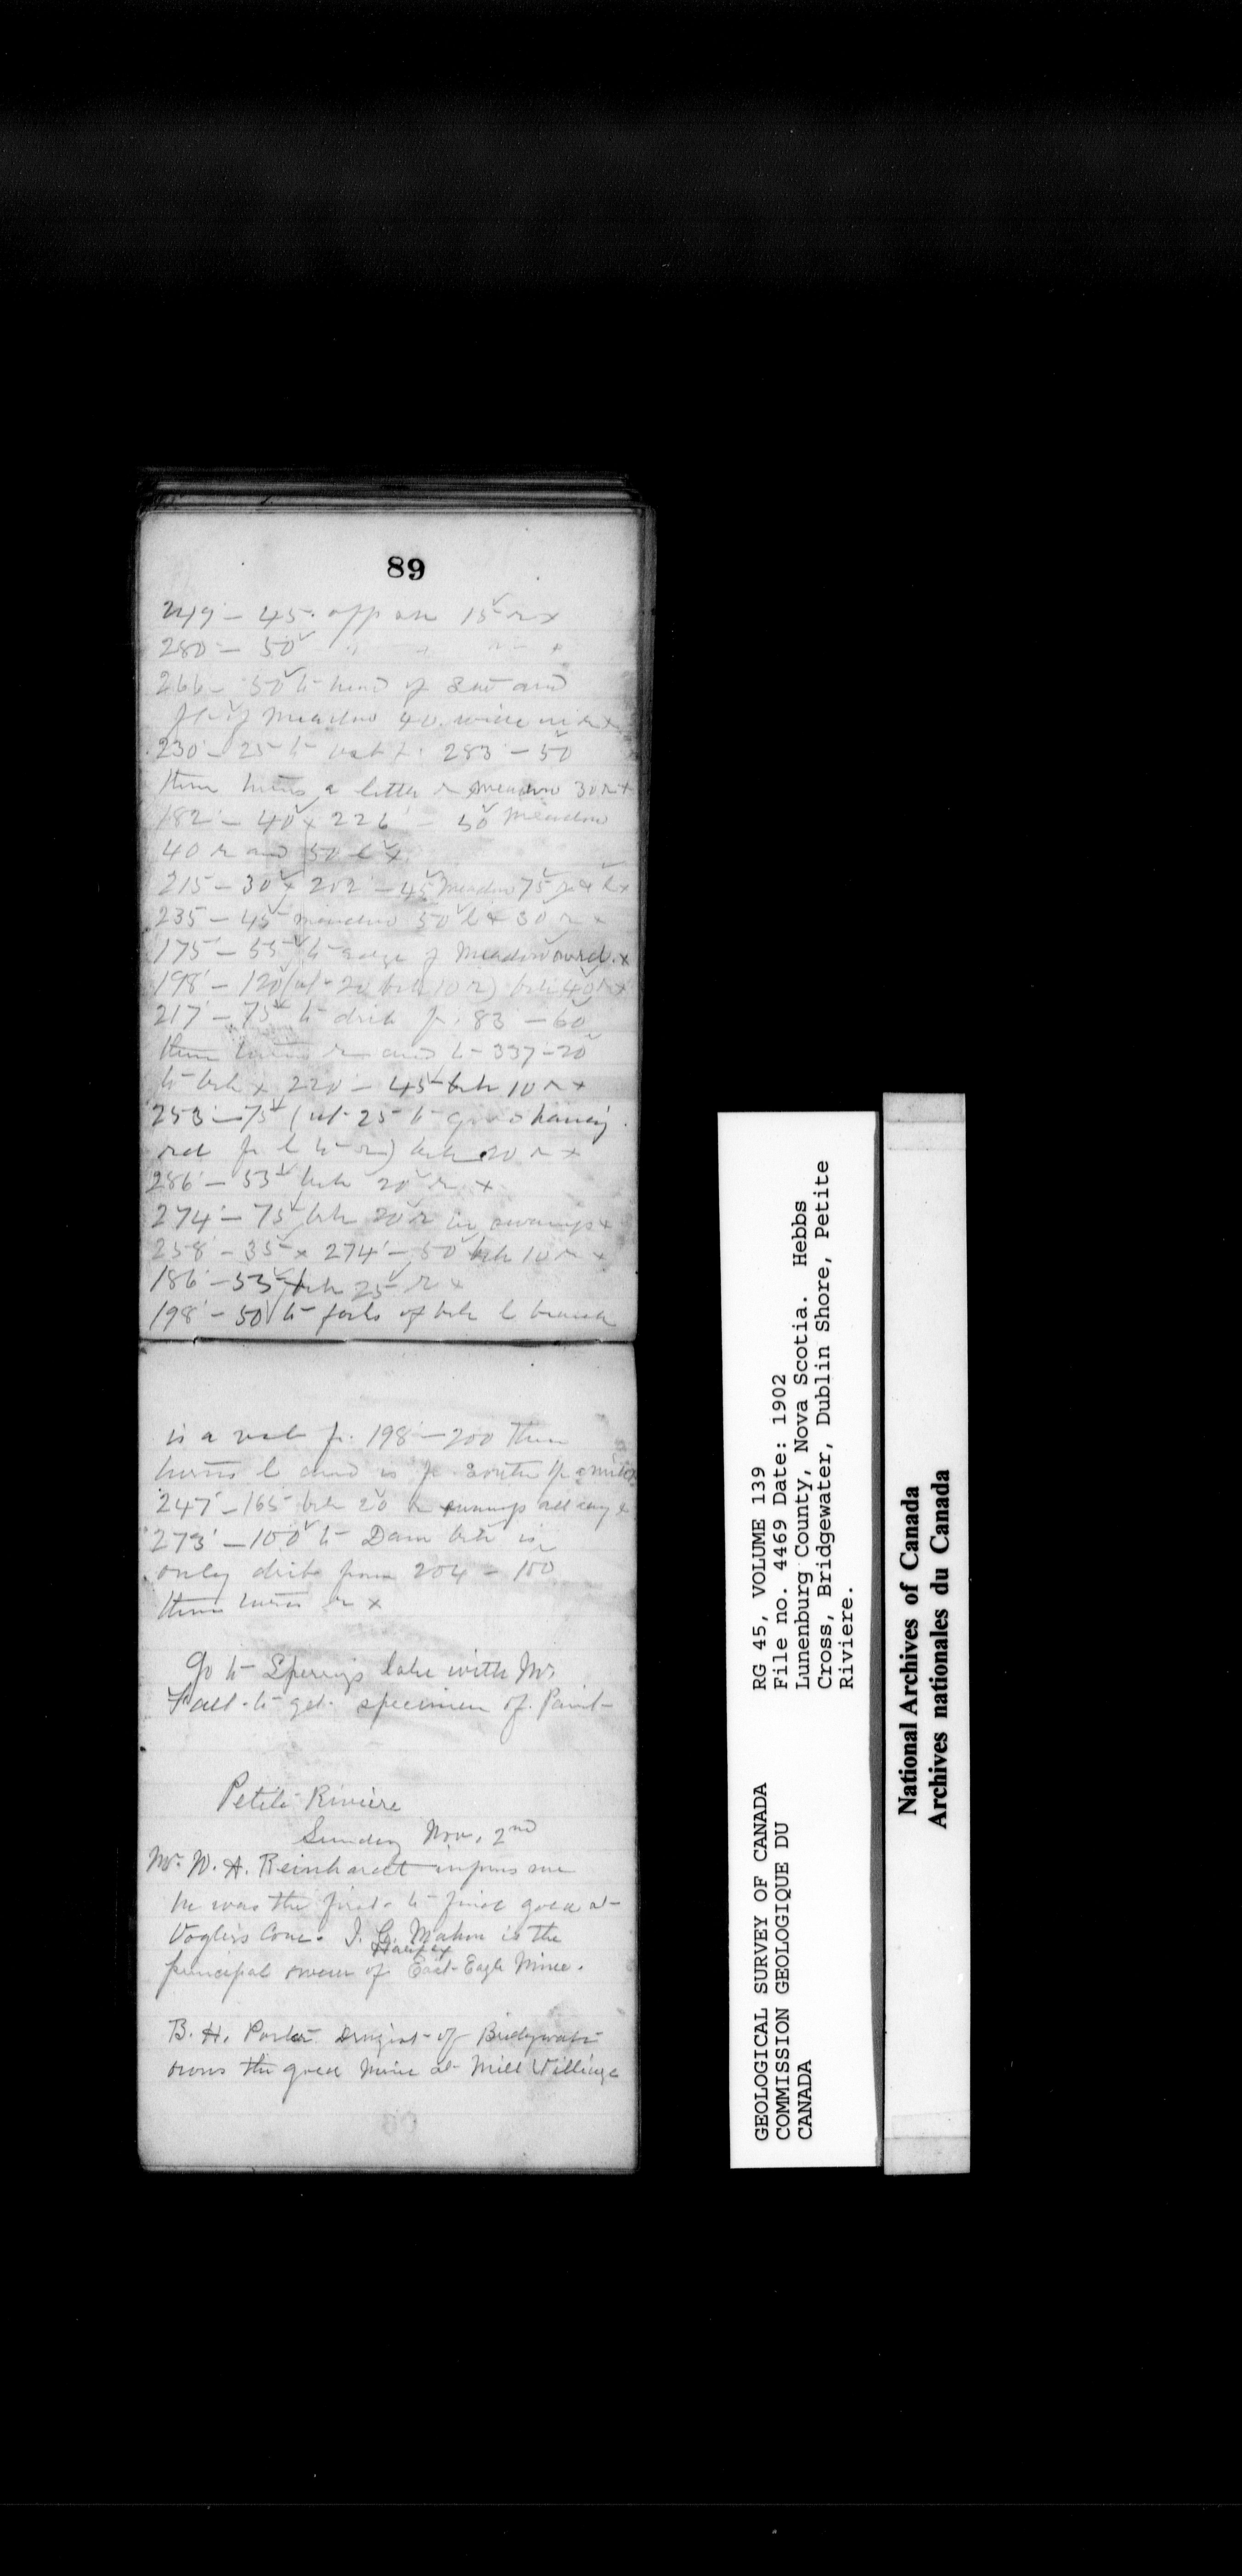 89
249 - 45 opp an 15 r x
280 - 50 " " " x
266 - 50 to head of and
of meadow 40 wide x
230 - 25 to x 283 - 50
then turns a little r meadow 30 r x
182 - 40 x 226 - 50 meadow
40 r and 50 l x
215 - 30 x 202 - 45 meadow 75 r & l x
235 - 45 meadow 50 l & 30 r x
175 - 55 to edge of meadow x
198 - 120 (at 20 brk 10 r) brk 40 r x
217 - 75 to fr. 83 - 60
then turns r and to 337 - 20
to brk x 220 - 45 brk 10 r x
253 - 75 (at 25 to good
rd fr l to r) brk 20 r x
286 - 55 brk 20 r x
274 - 75 brk 20 r in swamp x
258 - 35 x 274 - 50 brk 10 r x
186 - 55 brk 25 r x
198 - 50 to forks of brk l branch
is a fr. 198 - 200 then
turns l and is fr. South
247 - 165 brk 20 r swamp all way x
273 - 100 to Dam brk is
only from 204 - 100
then turns r x
Go to Sperry's lake with Mr
to get specimen of Paint
Petite Riviere
Sunday Nov. 2nd
Mr. W. A. Reinhardt informs me
he was the first to find gold at
Voglers Cove. J. G. Mahon is the
Halifax
principal owner of East Eagle Mine.
B. H. Porter Drugist of Bridgwater
owns the gold mine at Mill Village
GEOLOGICAL SURVEY OF CANADA
COMMISSION GEOLOGIQUE DU
CANADA
RG 45, VOLUME 139
File no. 4469 Date: 1902
Lunenburg County, Nova Scotia. Hebbs
Cross, Bridgewater, Dublin Shore, Petite
Riviere.
National Archives of Canada
Archives nationales du Canada